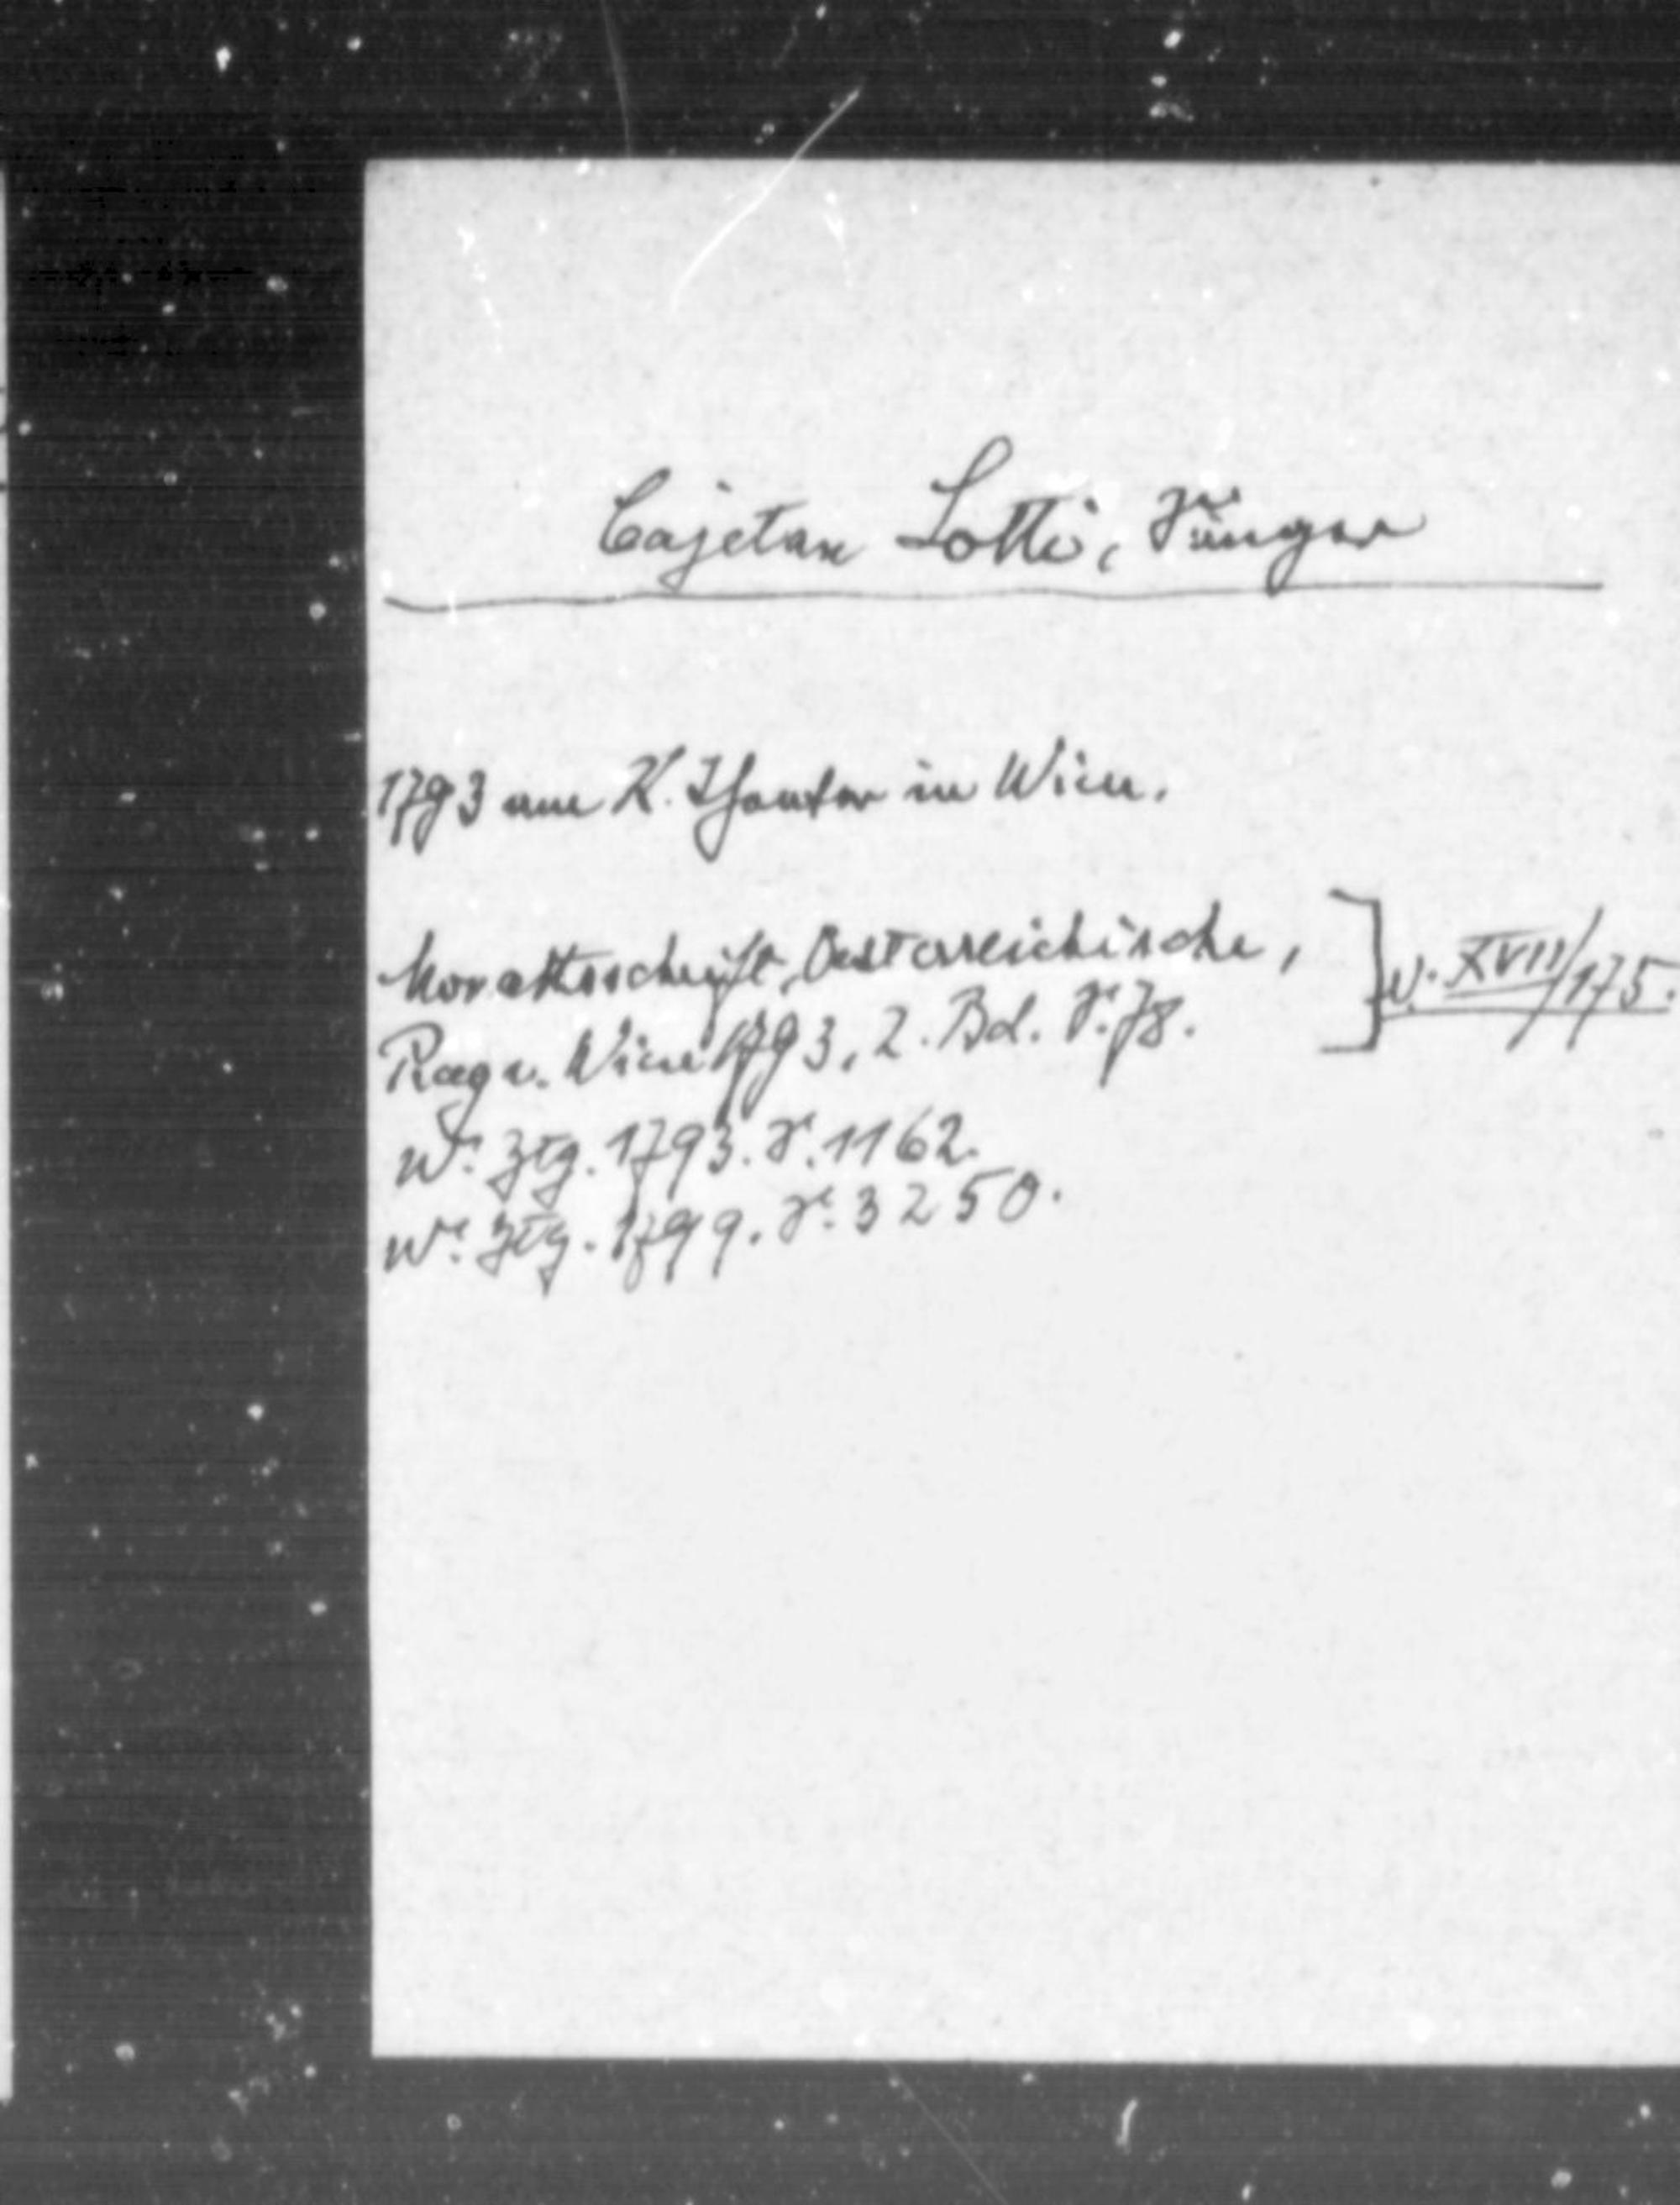 Cajetan Lotti, Sänger
1793 am K. Theater in Wien.
Monattsschrift, Oesterreichische,
Prag u. Wien 1793, 2. Bd. S. 78.
v. XVII/175.
Wr. Ztg. 1793. S. 1162.
Wr. Ztg. 1799. S. 3250.